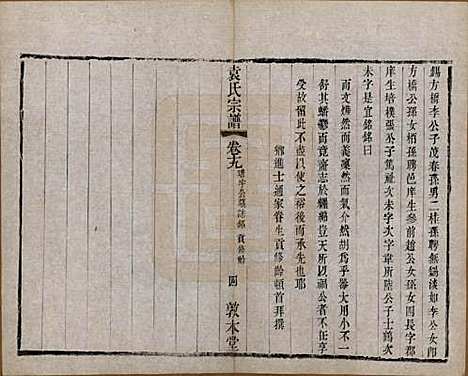 錫方橋李公子茂春孫男二桂孫聘無錫淡如李公女卽
方橋公孫女栢孫聘邑庠生參前趙公女孫女四長字郡
庠生培樸張公子篤次未字次字韋所陸公子士
未字是宜銘銘曰
而文燁然而義凜然而胡爲乎器大用小不一
舒其蟠鬱而竟齎志於豈天所以福公者不在享
受故留此不盡以使之裕後而承先也耶
鄉進士通家眷生貢修齡頓首拜撰
袁氏宗譜
卷十九
公墓誌銘 貢修齡
四
敦本堂